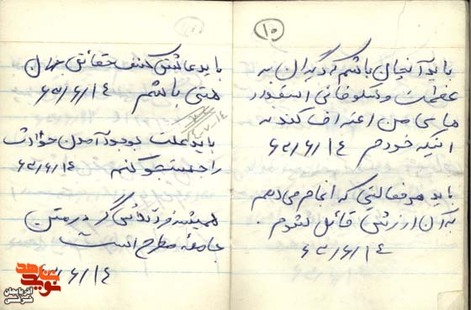 ۱۵
باید آنچنان باشم که دیگران به
عظمت و شکوفائی استعداد
های من اعتراف کنند نه
اینکه خودم ۶۳/۶/۱۴
باید هر فعالیتی که انجام می‌دهم
به آن ارزش قائل شوم.
۶۳/۶/۱۴
باید عاشق کشف حقائق جهان
هستی باشم ۶۳/۶/۱۴
باید علت بوجود آمدن حوادث
را جستجو کنم ۶۳/۶/۱۴
همیشه فرد تلاش‌گر در متن
جامعه مطرح است
۶/۱۴
نوید
آذربایجان
شرقی